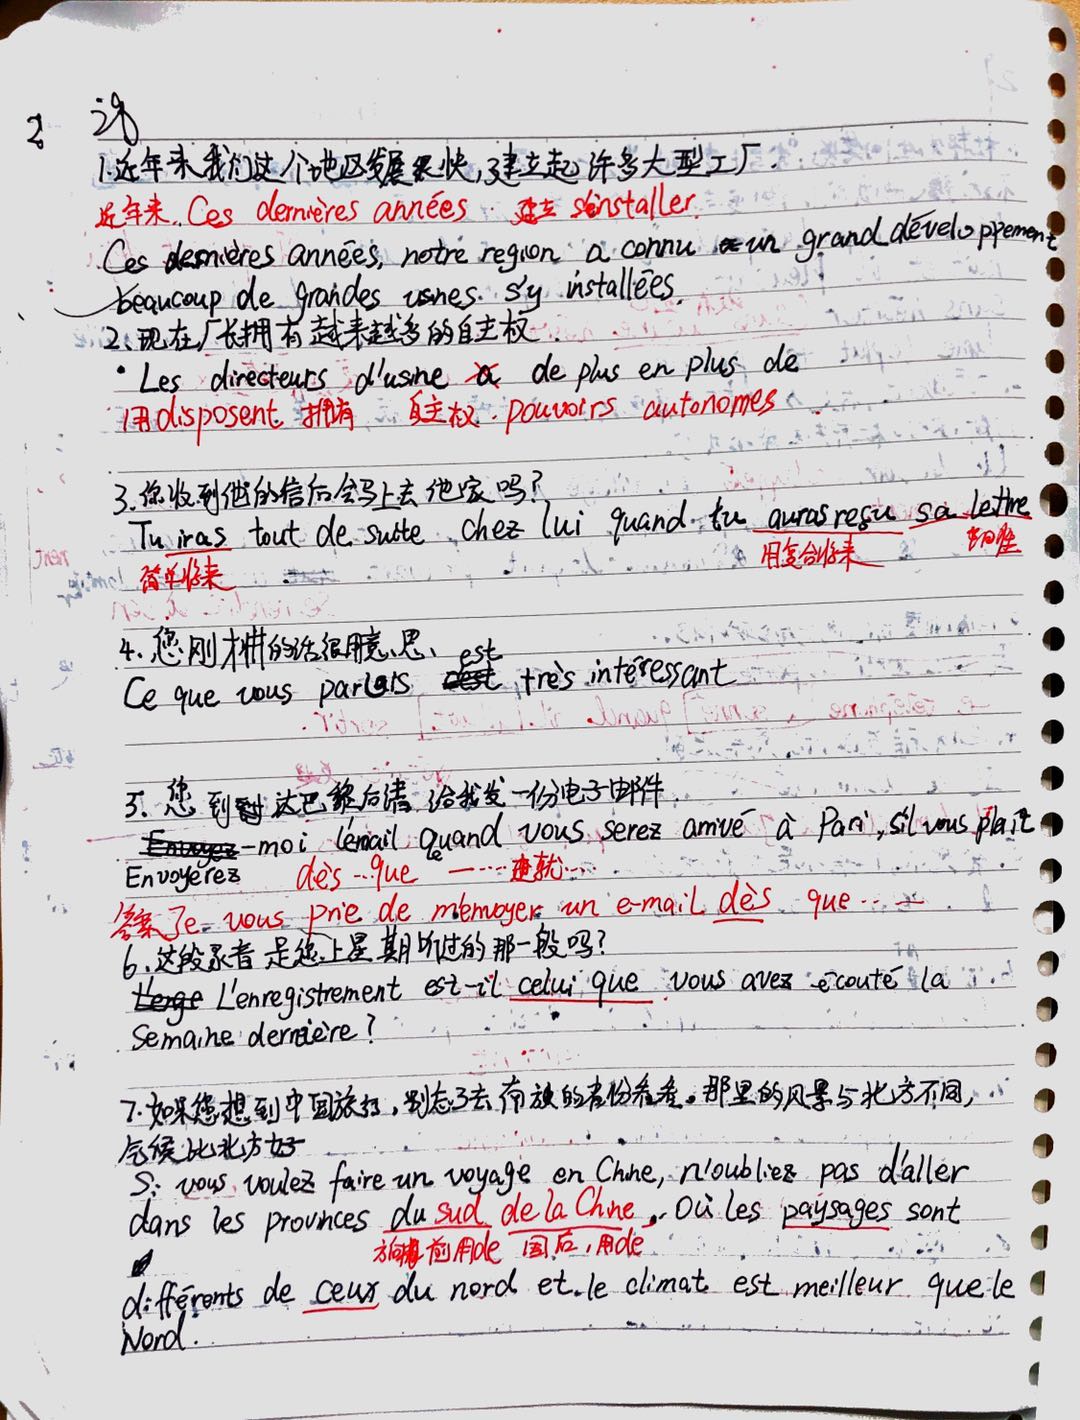 2
1.近年来我们这个地区发展很快,建立起许多大型工厂.
近年来. Ces dernières années. 建立 s'installer.
Ces dernières années, notre region a connu un grand développement
beaucoup de grandes usines. s'y installées.
2.现在厂长拥有越来越多的自主权.
Les directeurs d'usine a de plus en plus de
用disposent 拥有 自主权. pouvoirs autonomes
3.你收到他的信后会马上去他家吗?
Tu iras tout de suite chez lui quand tu auras reçu sa lettre
简单将来 用复合将来
4.您刚才讲的话很用意思.
est
Ce que vous parlais c'est très intéressant
5.您到达巴黎后请给我发一份电子邮件
Envoyez-moi l'émail quand vous serez arrivé à Pari, s'il vous plaît
Envoyerez dès que 一……就…
答案 Je vous prie de m'envoyer un e-mail dès que……
6.这段录音是您上星期听过的那一般吗?
L'enregistrement est-il celui que vous avez écouté la
semaine dernière?
7.如果您想到中国旅行,别忘了去南方的省份看看。那里的风景与北方不同,
气候比北方好
Si vous voulez faire un voyage en Chine, n'oubliez pas d'aller
dans les provinces du sud de la Chine. Où les paysages sont
前用de 国后,用de
différents de ceux du nord et le climat est meilleur que le
Nord.